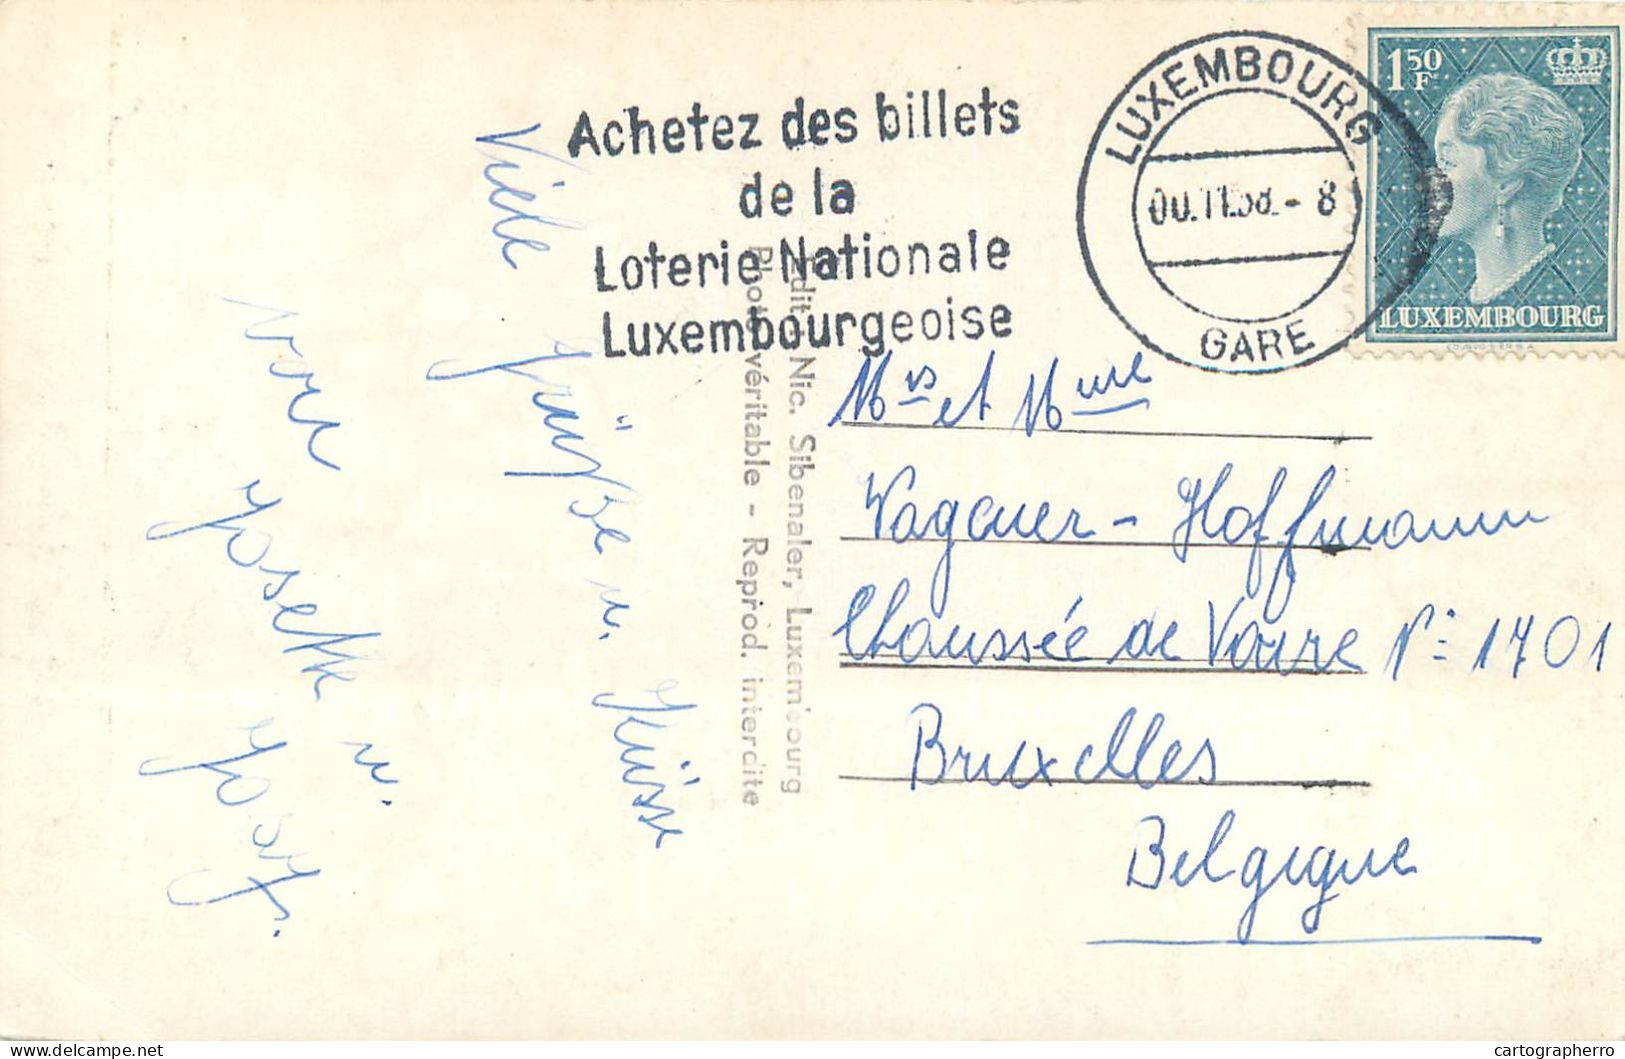 Achetez des billets
de la
Loterie Nationale
Luxembourgeoise
LUXEMBOURG
GARE
1 50 F
LUXEMBOURG
COURVOISIER S.A.
Viele
Grüße u. Küsse
von Josette u.
Josy.
Edit. Nic. Sibenaler, Luxembourg
Photo véritable - Reprod. interdite
Mrs et Mme
Wagener - Hoffmann
Chaussée de Wavre N: 1701
Bruxelles
Belgique
delcampe.net
cartographerro